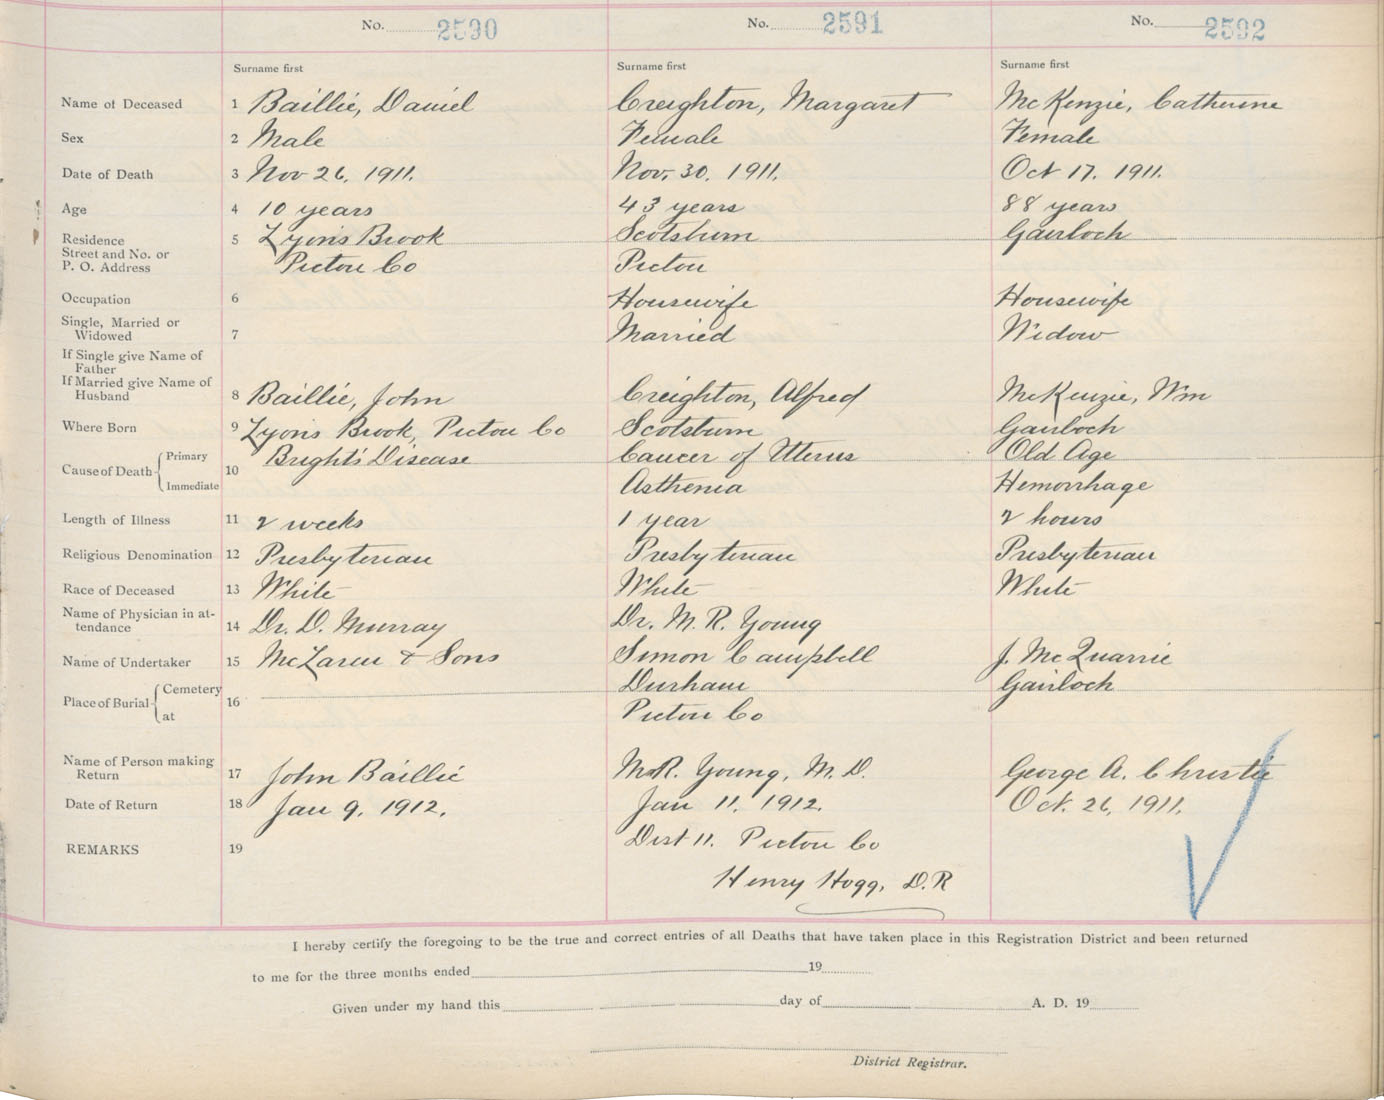 No. 2590 No. 2591 No. 2592
Surname first Surname first Surname first
Name of Deceased 1 Baillie, Daniel Creighton, Margaret McKenzie, Catherine
Sex 2 Male Female Female
Date of Death 3 Nov 26. 1911. Nov. 30. 1911. Oct 17. 1911.
Age 4 10 years 43 years 88 years
Residence 5 Lyons Brook Scotsburn Gairloch
Street and No. or
P. O. Address Pictou Co Pictou
Occupation 6 Housewife Housewife
Single, Married or
Widowed 7 Married Widow
If Single give Name of
Father
If Married give Name of
Husband 8 Baillie, John Creighton, Alfred McKenzie, Wm
Where Born 9 Lyons Brook, Pictou Co Scotsburn Gairloch
Cause of Death Primary 10 Bright's Disease Cancer of Uterus Old Age
Immediate Asthenia Hemorrhage
Length of Illness 11 2 weeks 1 year 2 hours
Religious Denomination 12 Presbyterian Presbyterian Presbyterian
Race of Deceased 13 White White White
Name of Physician in at-
tendance 14 Dr. D. Murray Dr. M. R. Young
Name of Undertaker 15 McLaren & Sons Simon Campbell J. McQuarrie
Place of Burial Cemetery 16 Durham Gairloch
at Pictou Co
Name of Person making
Return 17 John Baillie M.R. Young, M.D. George A. Christie
Date of Return 18 Jan 9. 1912. Jan 11. 1912. Oct. 26, 1911.
REMARKS 19 Dist 11. Pictou Co
Henry Hogg, D.R
I hereby certify the foregoing to be the true and correct entries of all Deaths that have taken place in this Registration District and been returned
to me for the three months ended 19
Given under my hand this day of A. D. 19
District Registrar.